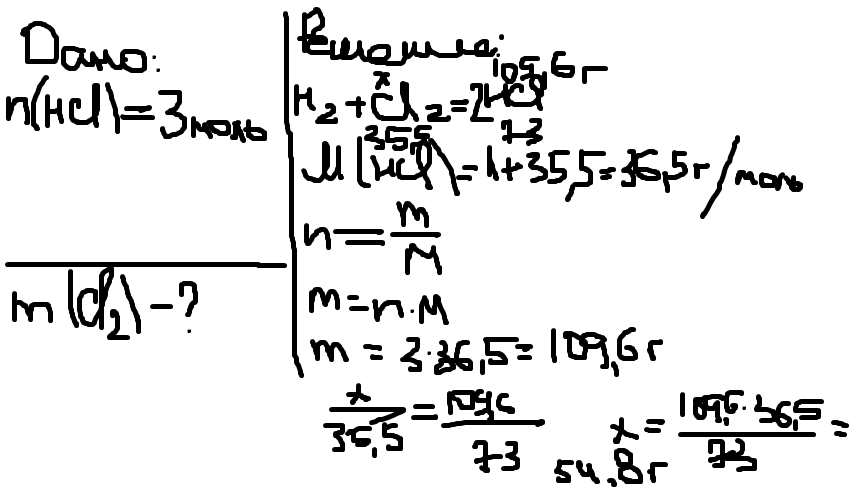 Дано:
n(HCl)=3моль
m(Cl2)-?
Решение:
109,6г
x
H2+Cl2=2HCl
35,5 73
M(HCl)=1+35,5=36,5г/моль
n=m/M
m=n·M
m=3·36,5=109,6г
x/35,5=109,6/73 x=109,6·36,5/73=
54,8г